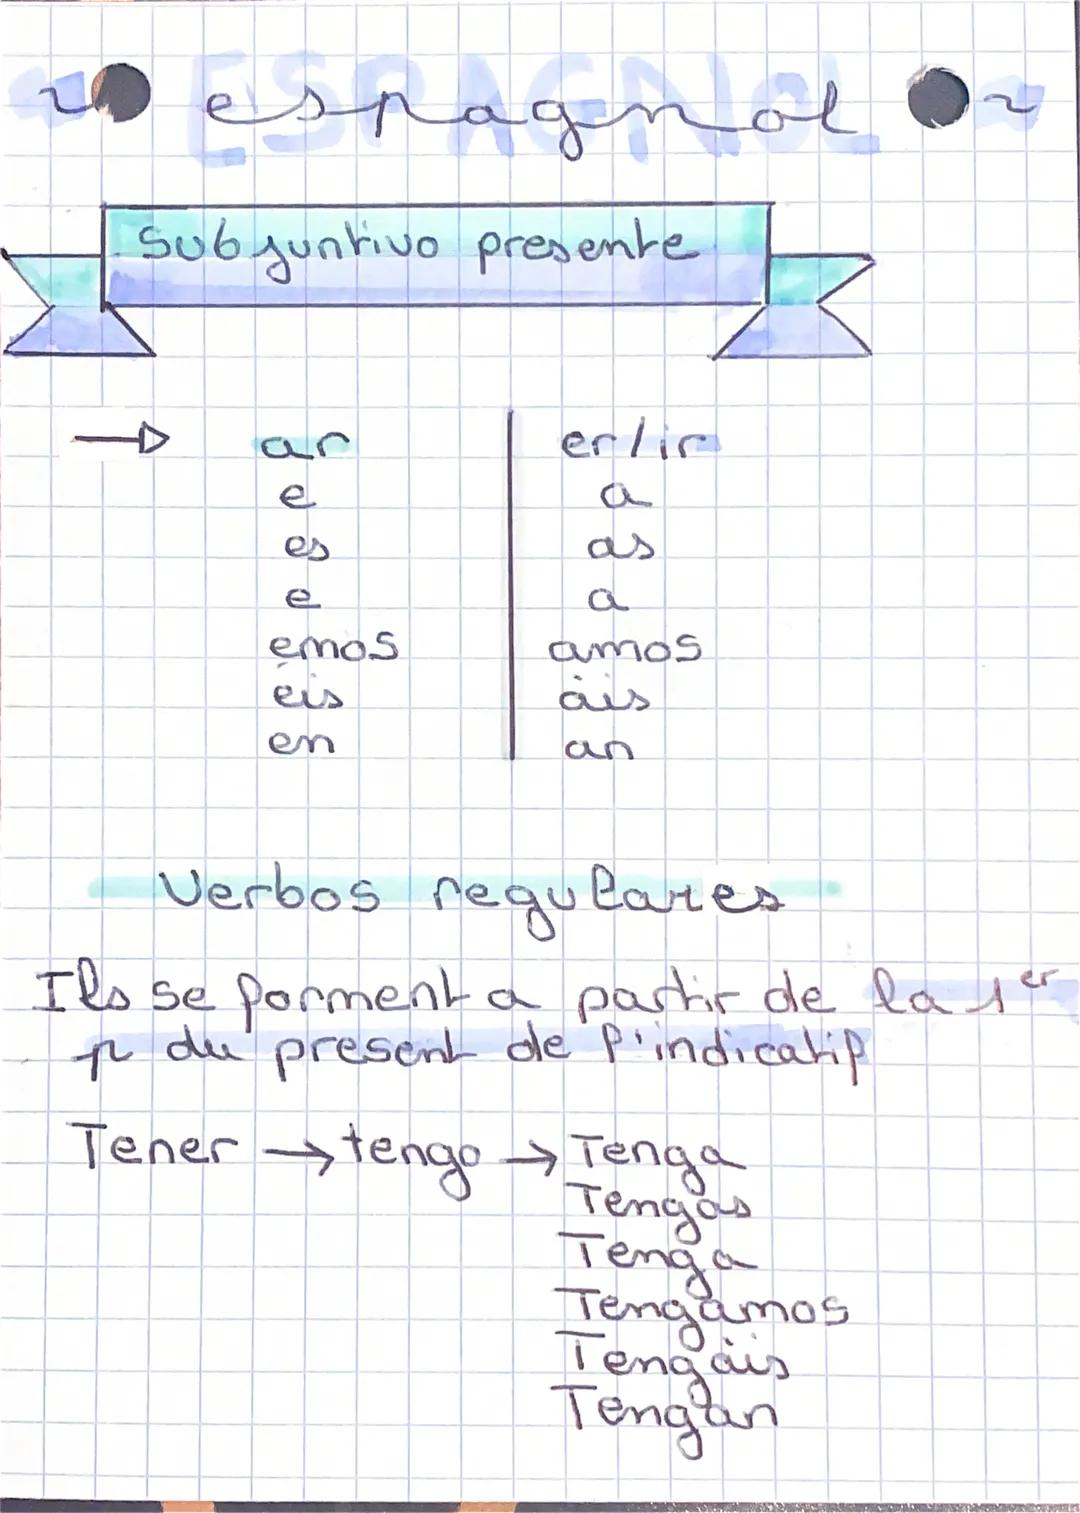 ~ espagnol ~
ESPAGNOL
Subjuntivo presente
→ ar er/ir
e a
es as
e a
emos amos
éis áis
en an
Verbos regulares
Ils se forment a partir de la 1er
p du present de l'indicatif
Tener → tengo → Tenga
Tengas
Tenga
Tengamos
Tengáis
Tengan